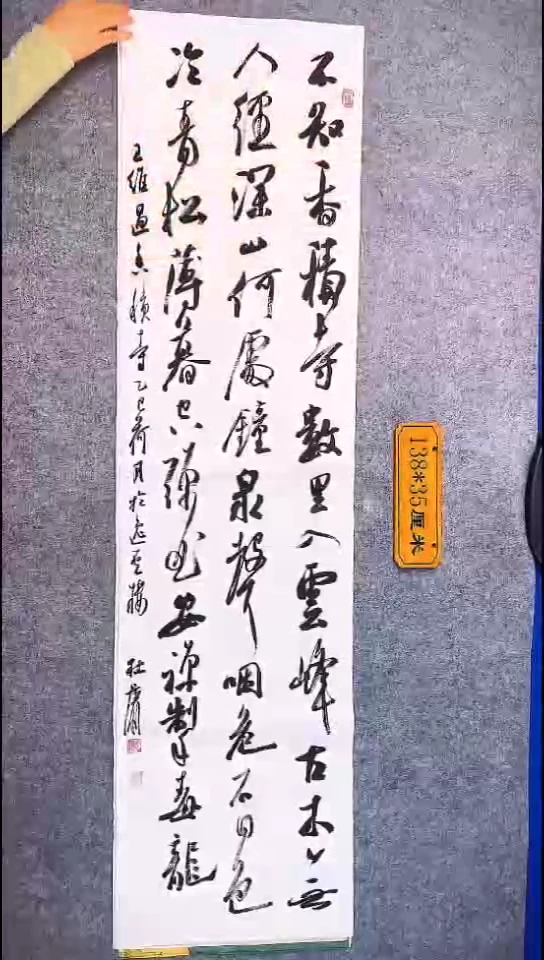 不知香積寺數里入雲峰古木無
人徑深山何處鐘泉聲咽危石日色
冷青松薄暮空潭曲安禪制毒龍
王維過香積寺乙巳荷月於
138*35厘米